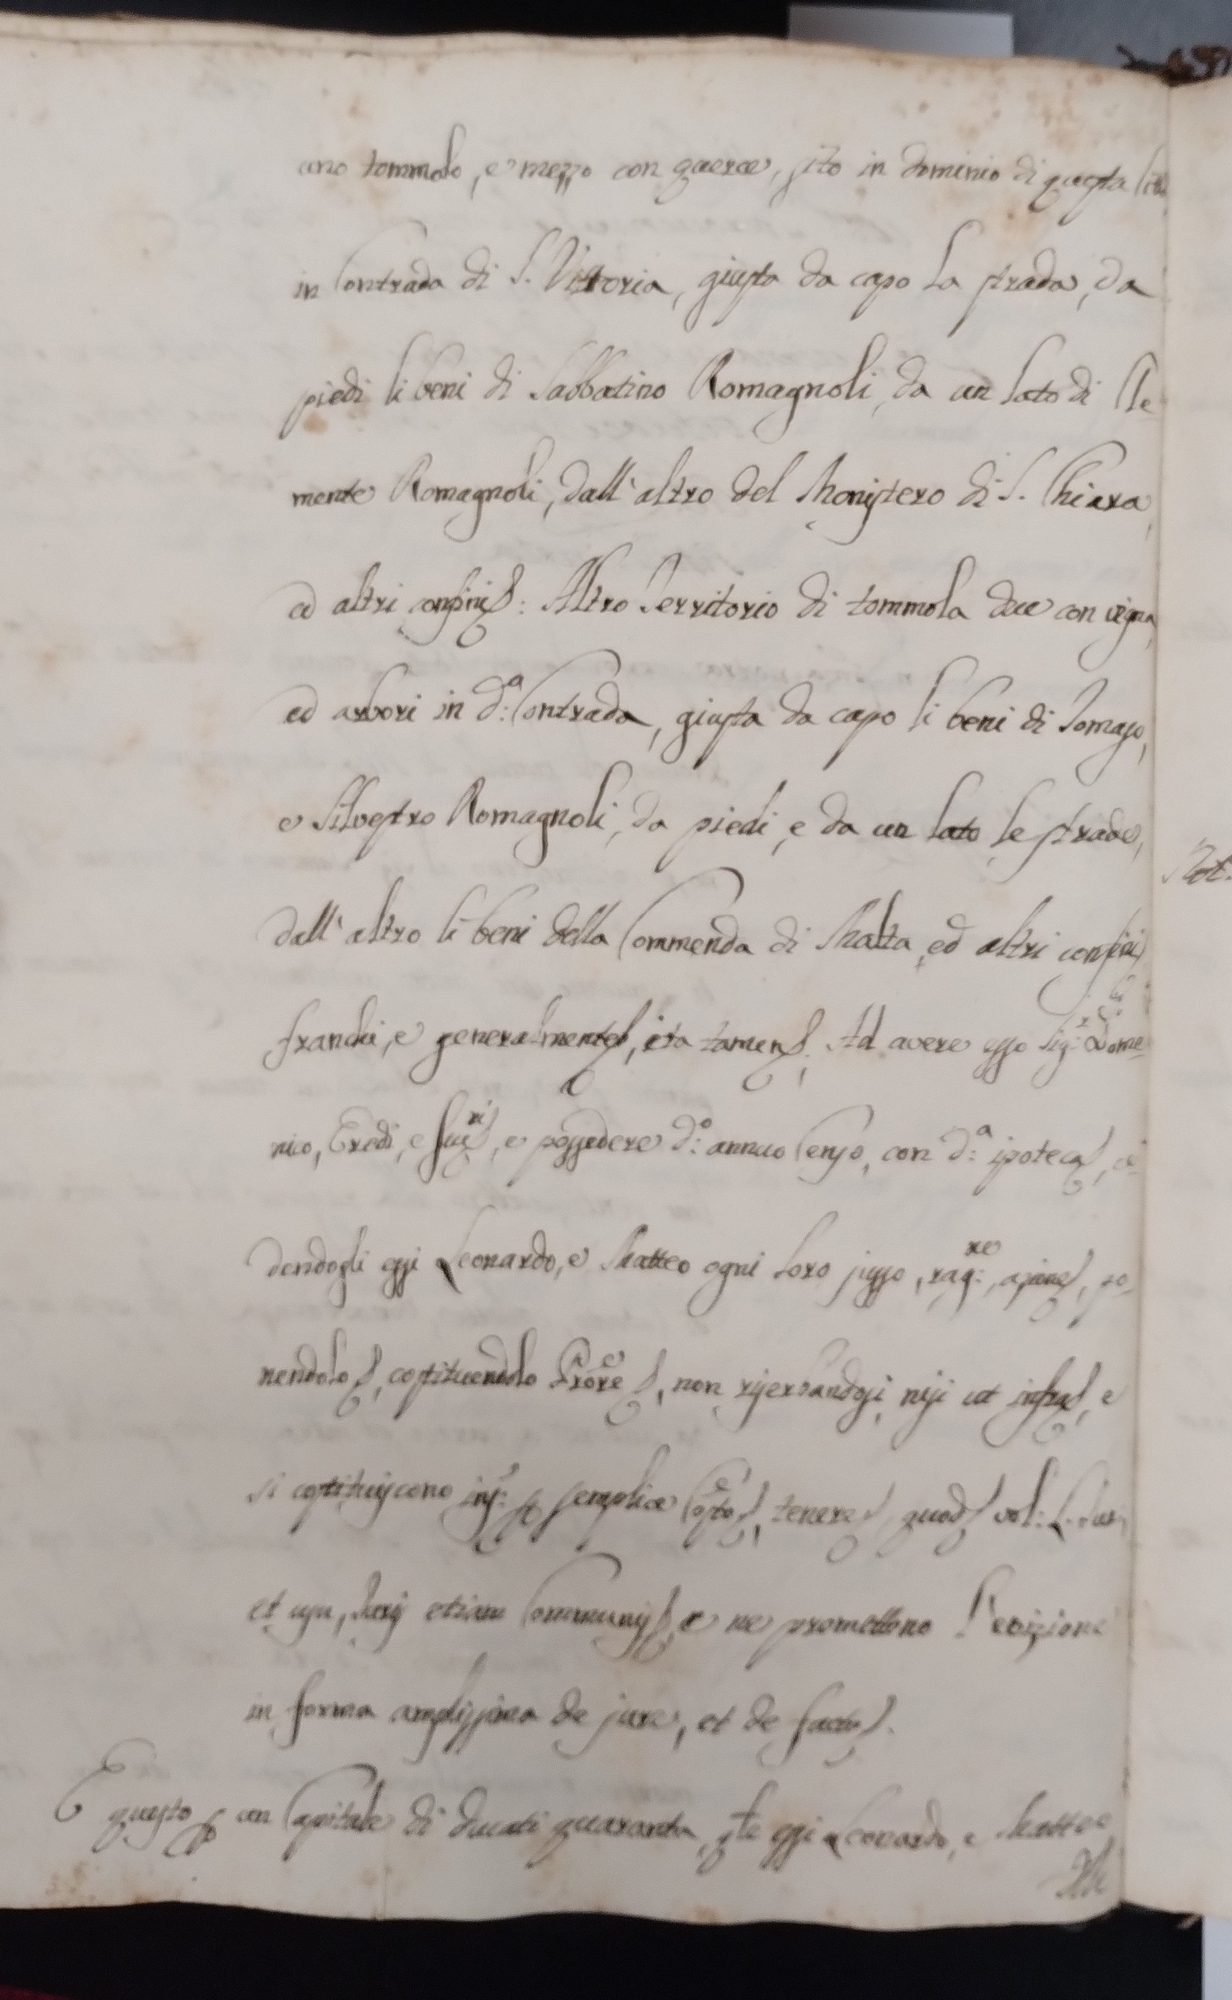 uno tommolo, e mezzo con querce, sito in dominio di questa Città
in Contrada di S. Vittoria, giusta da capo la strada, da
piedi li beni di Sabbatino Romagnoli, da un lato di Cle
mente Romagnoli, dall'altro del Monistero di S. Chiara,
ed altri confini: Altro Territorio di tommola dece con vigna,
ed arbori in d:ª Contrada, giusta da capo li beni di Tomaso,
e Silvestro Romagnoli, da piedi, e da un lato le strade,
dall'altro li beni della Commenda di Malta, ed altri confini
franchi, e generalmente, ita tamen. Ad avere esso Sig:r D: Dome
nico, Eredi, e suc:ri, e possedere d:º annuo Censo, con d:ª ipoteca, ce
dendogli essi Leonardo, e Matteo ogni loro jusso, rag:ne, azione, po
nendolo, costituendolo Prore, non riserbandosi, nisi ut infra, e
si costituiscono semplice tenere, quod vol:
et usu, Juris etiam Communis, e ne promettono l'evizione
in forma amplissima de jure, et de facto.
E questo p un Capitale di ducati quaranta, q̃le essi Leonardo, e Matteo
Not: